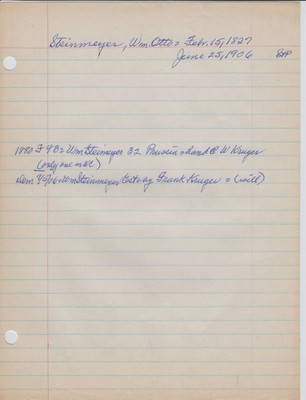 Steinmeyer, Wm. Otto = Febr. 15, 1827
June 25, 1906
1880 F 98 = Wm Steimeyer 32 Prussia = hand @ W Kruger
(only one in WC)
Wm Steinmeyer Frank Kruger = (will)